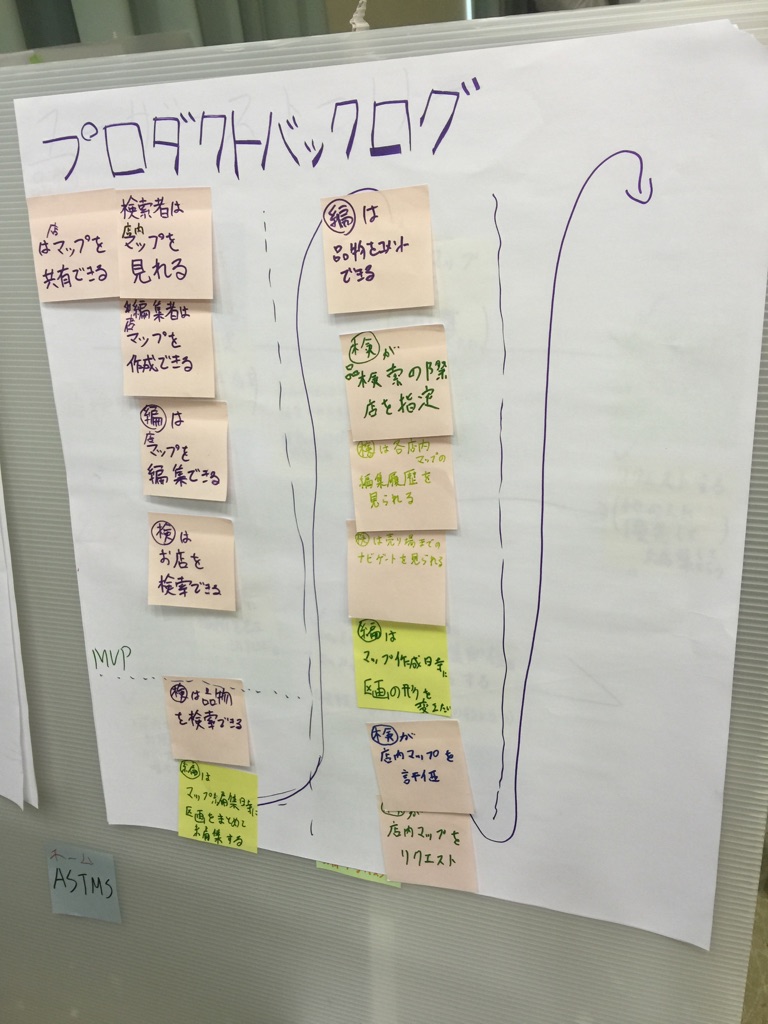 プロダクトバックログ
店
はマップを
共有できる
検索者は
店内
マップを
見れる
編集者は
店
マップを
作成できる
編は
店
マップを
編集できる
検は
お店を
検索できる
MVP
検は品物
を検索できる
編は
マップ編集時に
区画をまとめて
編集する
編は
品物をコメント
できる
検が
品検索の際
店を指定
検は各店内
マップの
編集履歴を
見られる
検は売り場までの
ナビゲートを見られる
編は
マップ作成時に
区画の形を
変えたい
検が
店内マップを
評価
が
店内マップを
リクエスト
チーム
ASTMS